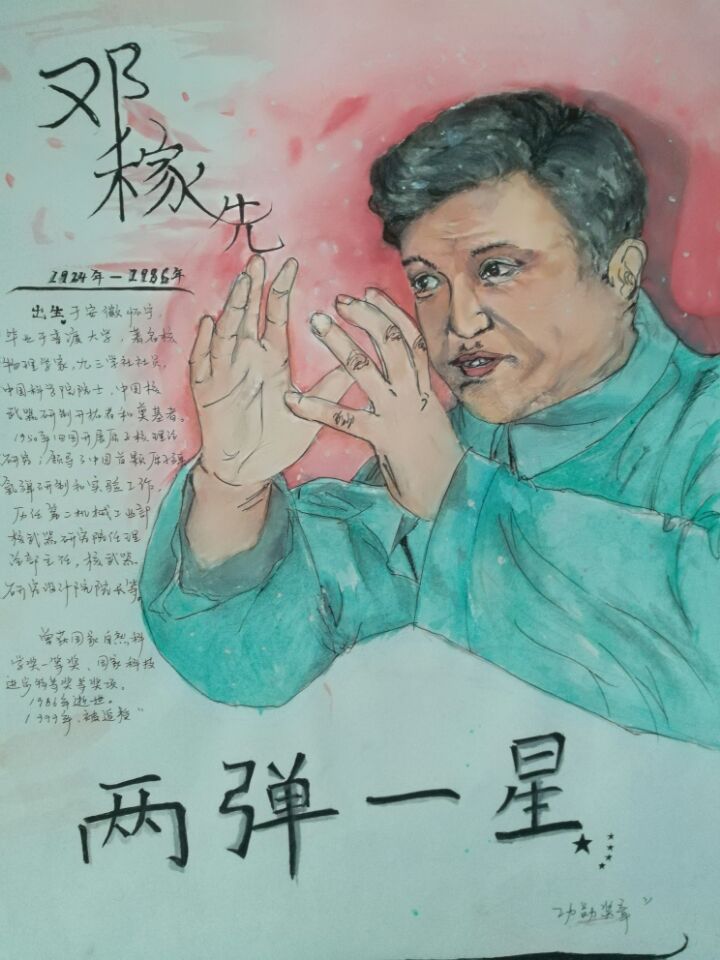 邓
稼
先
1924年-1986年
出生于安徽怀宁，
毕业于普渡大学，著名核
物理学家，九三学社社员，
中国科学院院士，中国核
武器研制开拓者和奠基者。
1950年回国开展原子核理论
研究，领导了中国首颗原子弹
氢弹研制和实验工作，
历任第二机械工业部
核武器研究院任理
论部主任，核武器
研究设计院院长等。
曾获国家自然科
学奖一等奖、国家科技
进步特等奖等奖项。
1986年逝世。
1999年，被追授"
两弹一星
功勋奖章"